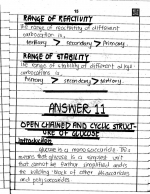 RANGE OF REACTIVITY
the range of reactivity of different
carbocation is,
tertiary > secondary > Primary
RANGE OF STABILITY
the range of stability of different alkyl
carbocations is,
Primary > secondary > tertiary
ANSWER 11
OPEN CHAINED AND CYCLIC STRUCT-
URE OF GLUCOSE
Introduction
glucose is a monosaccharide. This
means that glucose is a simplest unit
that cannot be further simplified and is
the building block of other disaccharides
and polysaccharides